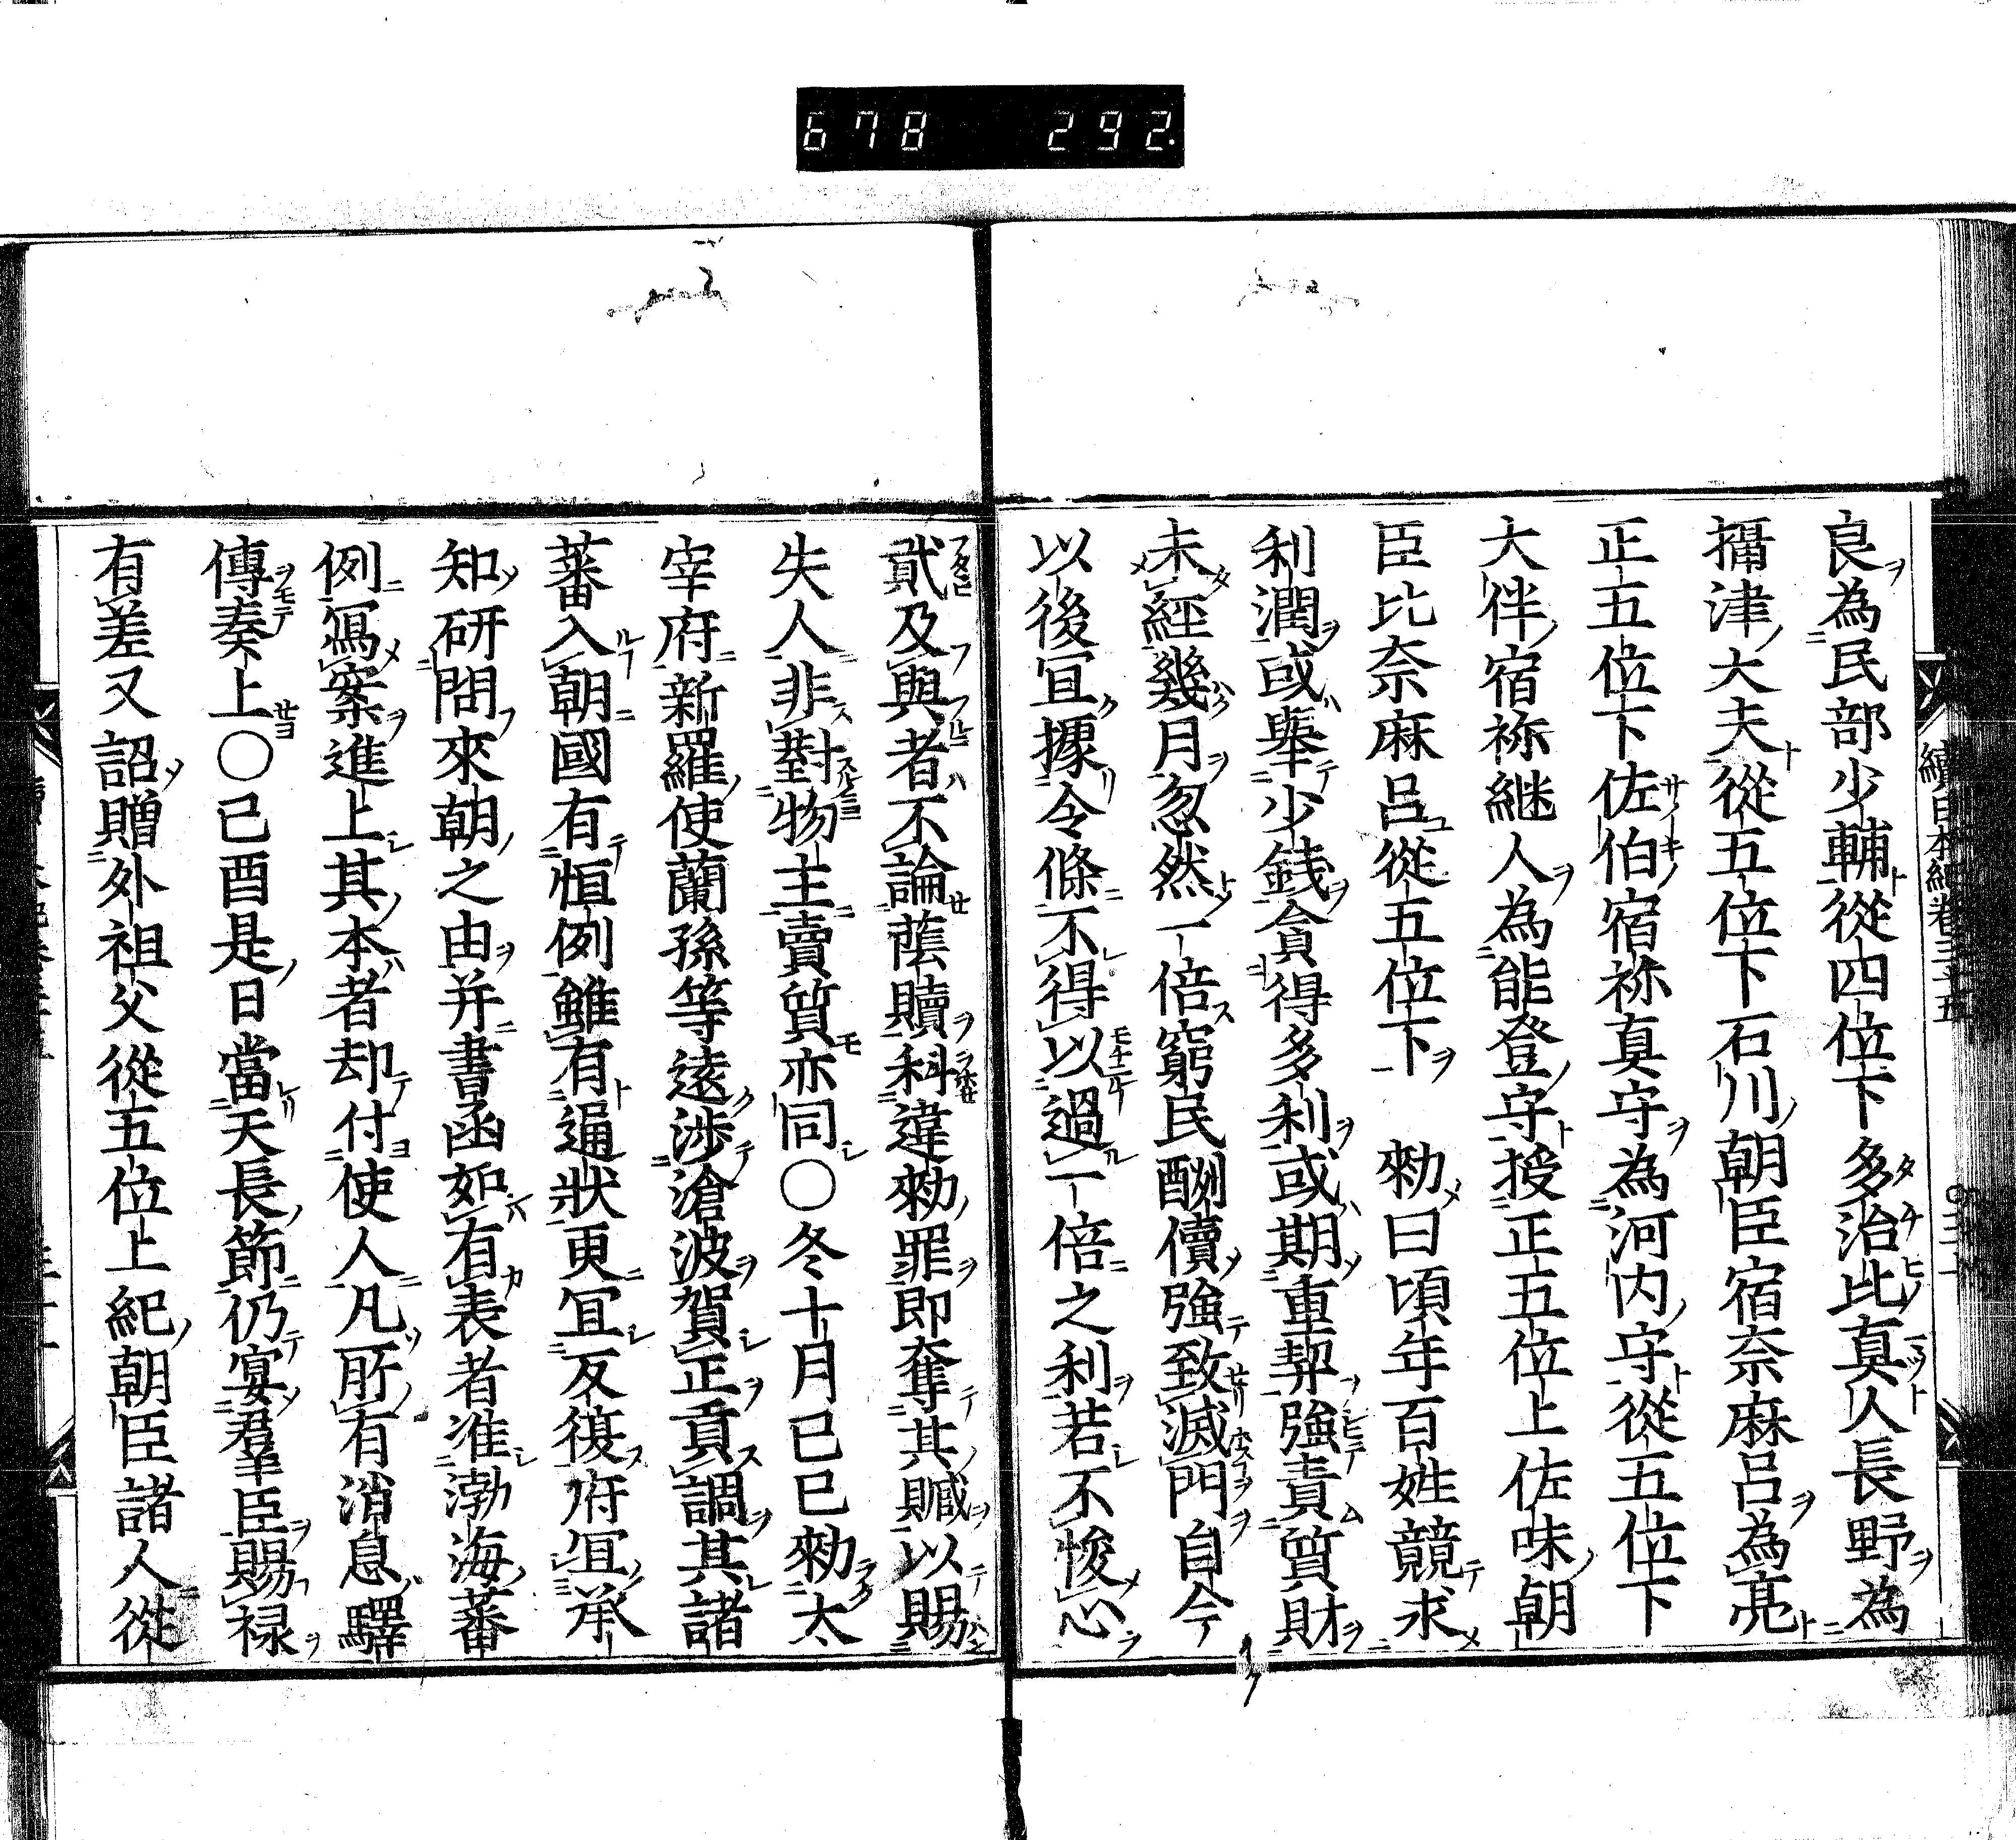 678 292.
續日本紀卷三十五
良為民部少輔從四位下多治比真人長野為
攝津大夫從五位下石川朝臣宿奈麻呂為亮
正五位下佐伯宿祢真守為河内守從五位下
大伴宿祢継人為能登守授正五位上佐味朝
臣比奈麻呂從五位下 勑曰頃年百姓競求
利潤或舉少錢貪得多利或期重契強責質財
未經幾月忽然一倍窮民酬償強致滅門自今
以後冝據令條不得以過一倍之利若不悛心
貮及與者不論蔭贖科違勑罪即奪其贓以賜
失人非對物主賣質亦同〇冬十月己巳勑太
宰府新羅使蘭孫等遠渉滄波賀正貢調其諸
蕃入朝國有恒例雖有通狀更冝反復府冝承
知研問來朝之由并書函如有表者准渤海蕃
例寫案進上其本者却付使人凡所有消息驛
傳奏上〇己酉是日當天長節仍宴羣臣賜禄
有差又詔贈外祖父從五位上紀朝臣諸人從